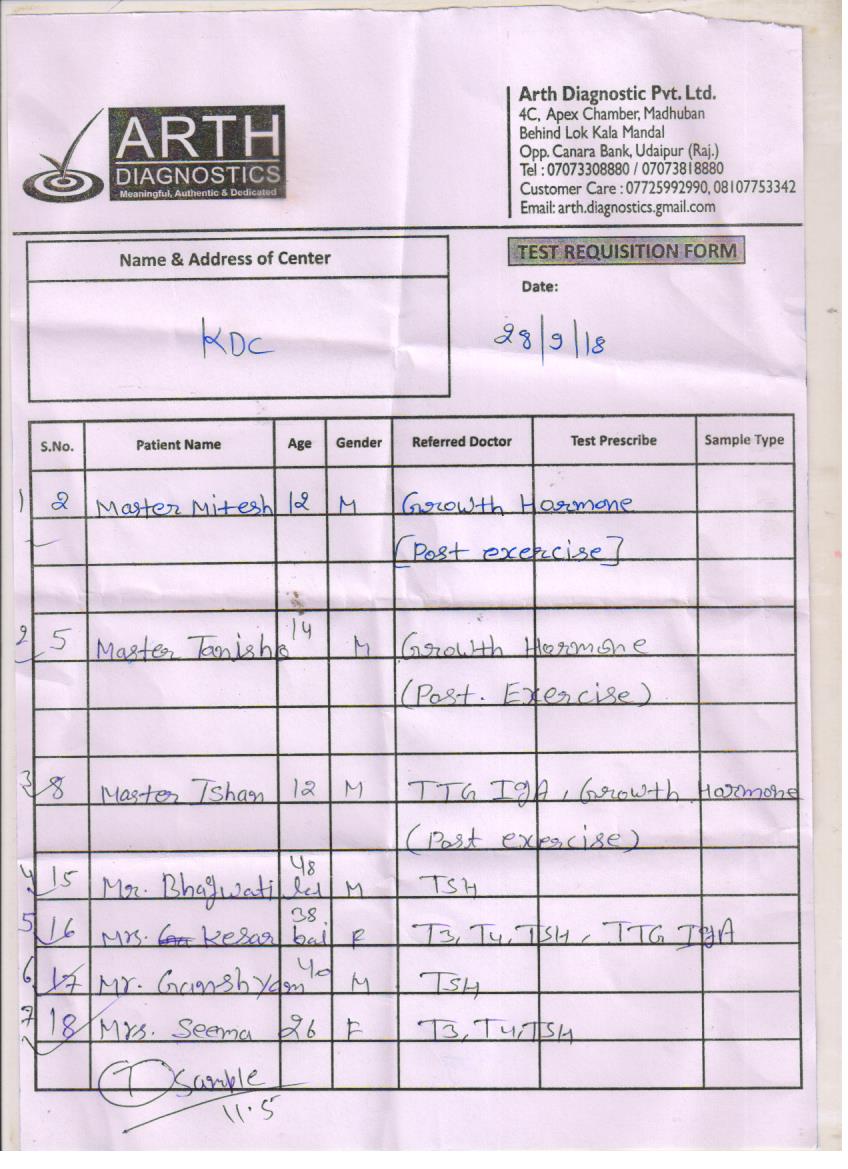 ARTH
DIAGNOSTICS
Meaningful, Authentic & Dedicated
Arth Diagnostic Pvt. Ltd.
4C, Apex Chamber, Madhuban
Behind Lok Kala Mandal
Opp. Canara Bank, Udaipur (Raj.)
Tel : 07073308880 / 07073818880
Customer Care : 07725992990, 08107753342
Email: arth.diagnostics.gmail.com
Name & Address of Center
TEST REQUISITION FORM
Date:
KDC
28/9/18
S.No. Patient Name Age Gender Referred Doctor Test Prescribe Sample Type
1 2 Master Mitesh 12 M Growth Hormone
[Post exercise]
2 5 Master Tanisha 14 M Growth Hormone
(Post. Exercise)
3 8 Master Ishan 12 M TTG IgA, Growth Hormone
(Post exercise)
4 15 Mr. Bhagwati lal 48 M TSH
5 16 Mrs. Kesar bai 38 F T3, T4, TSH, TTG IgA
6 17 Mr. Ganshyam 40 M TSH
7 18 Mrs. Seema 26 F T3, T4, TSH
7 Sample
11.5